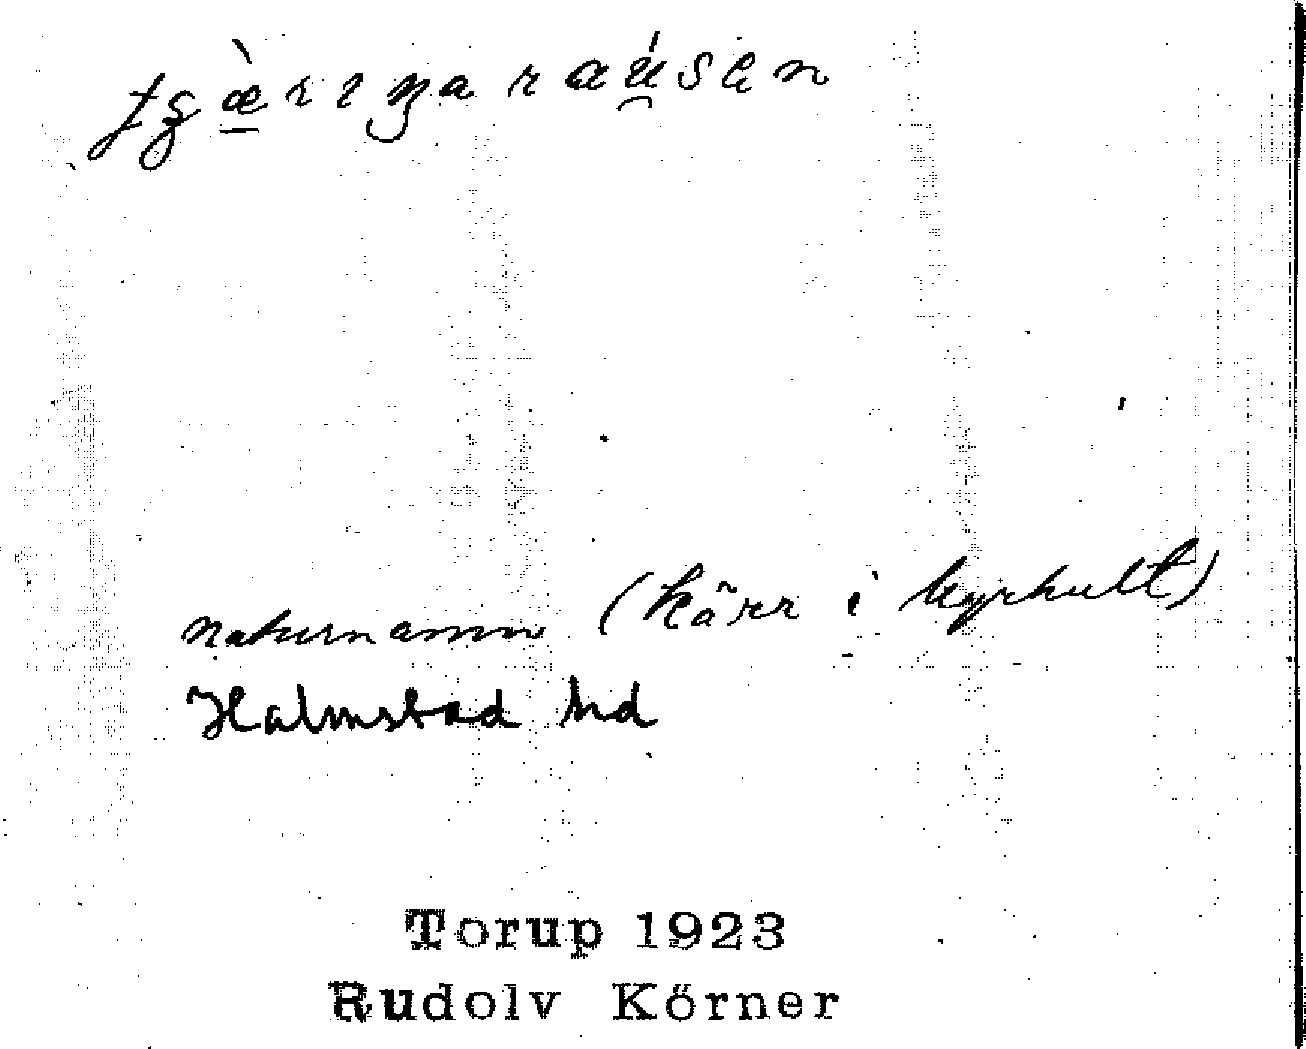 naturnamn (kärr i Kyrhult)
Halmstad hd
Torup 1923
Rudolv Körner